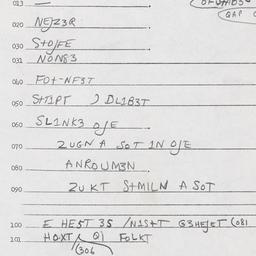 013
020 NEJZ3Q
030 StOJFE
031 NON83
040 FOt-NF3T
050 StIPT ) DL1B3T
060 SL1NK3 OJE
070 ZUGN A SOT IN OJE
080 ANROUM3N
090 ZU KT StMILN A SOT
100 E HE5T 35 /N1StT G3HEJET (081
101 HOXT Q) FOLKT
(306